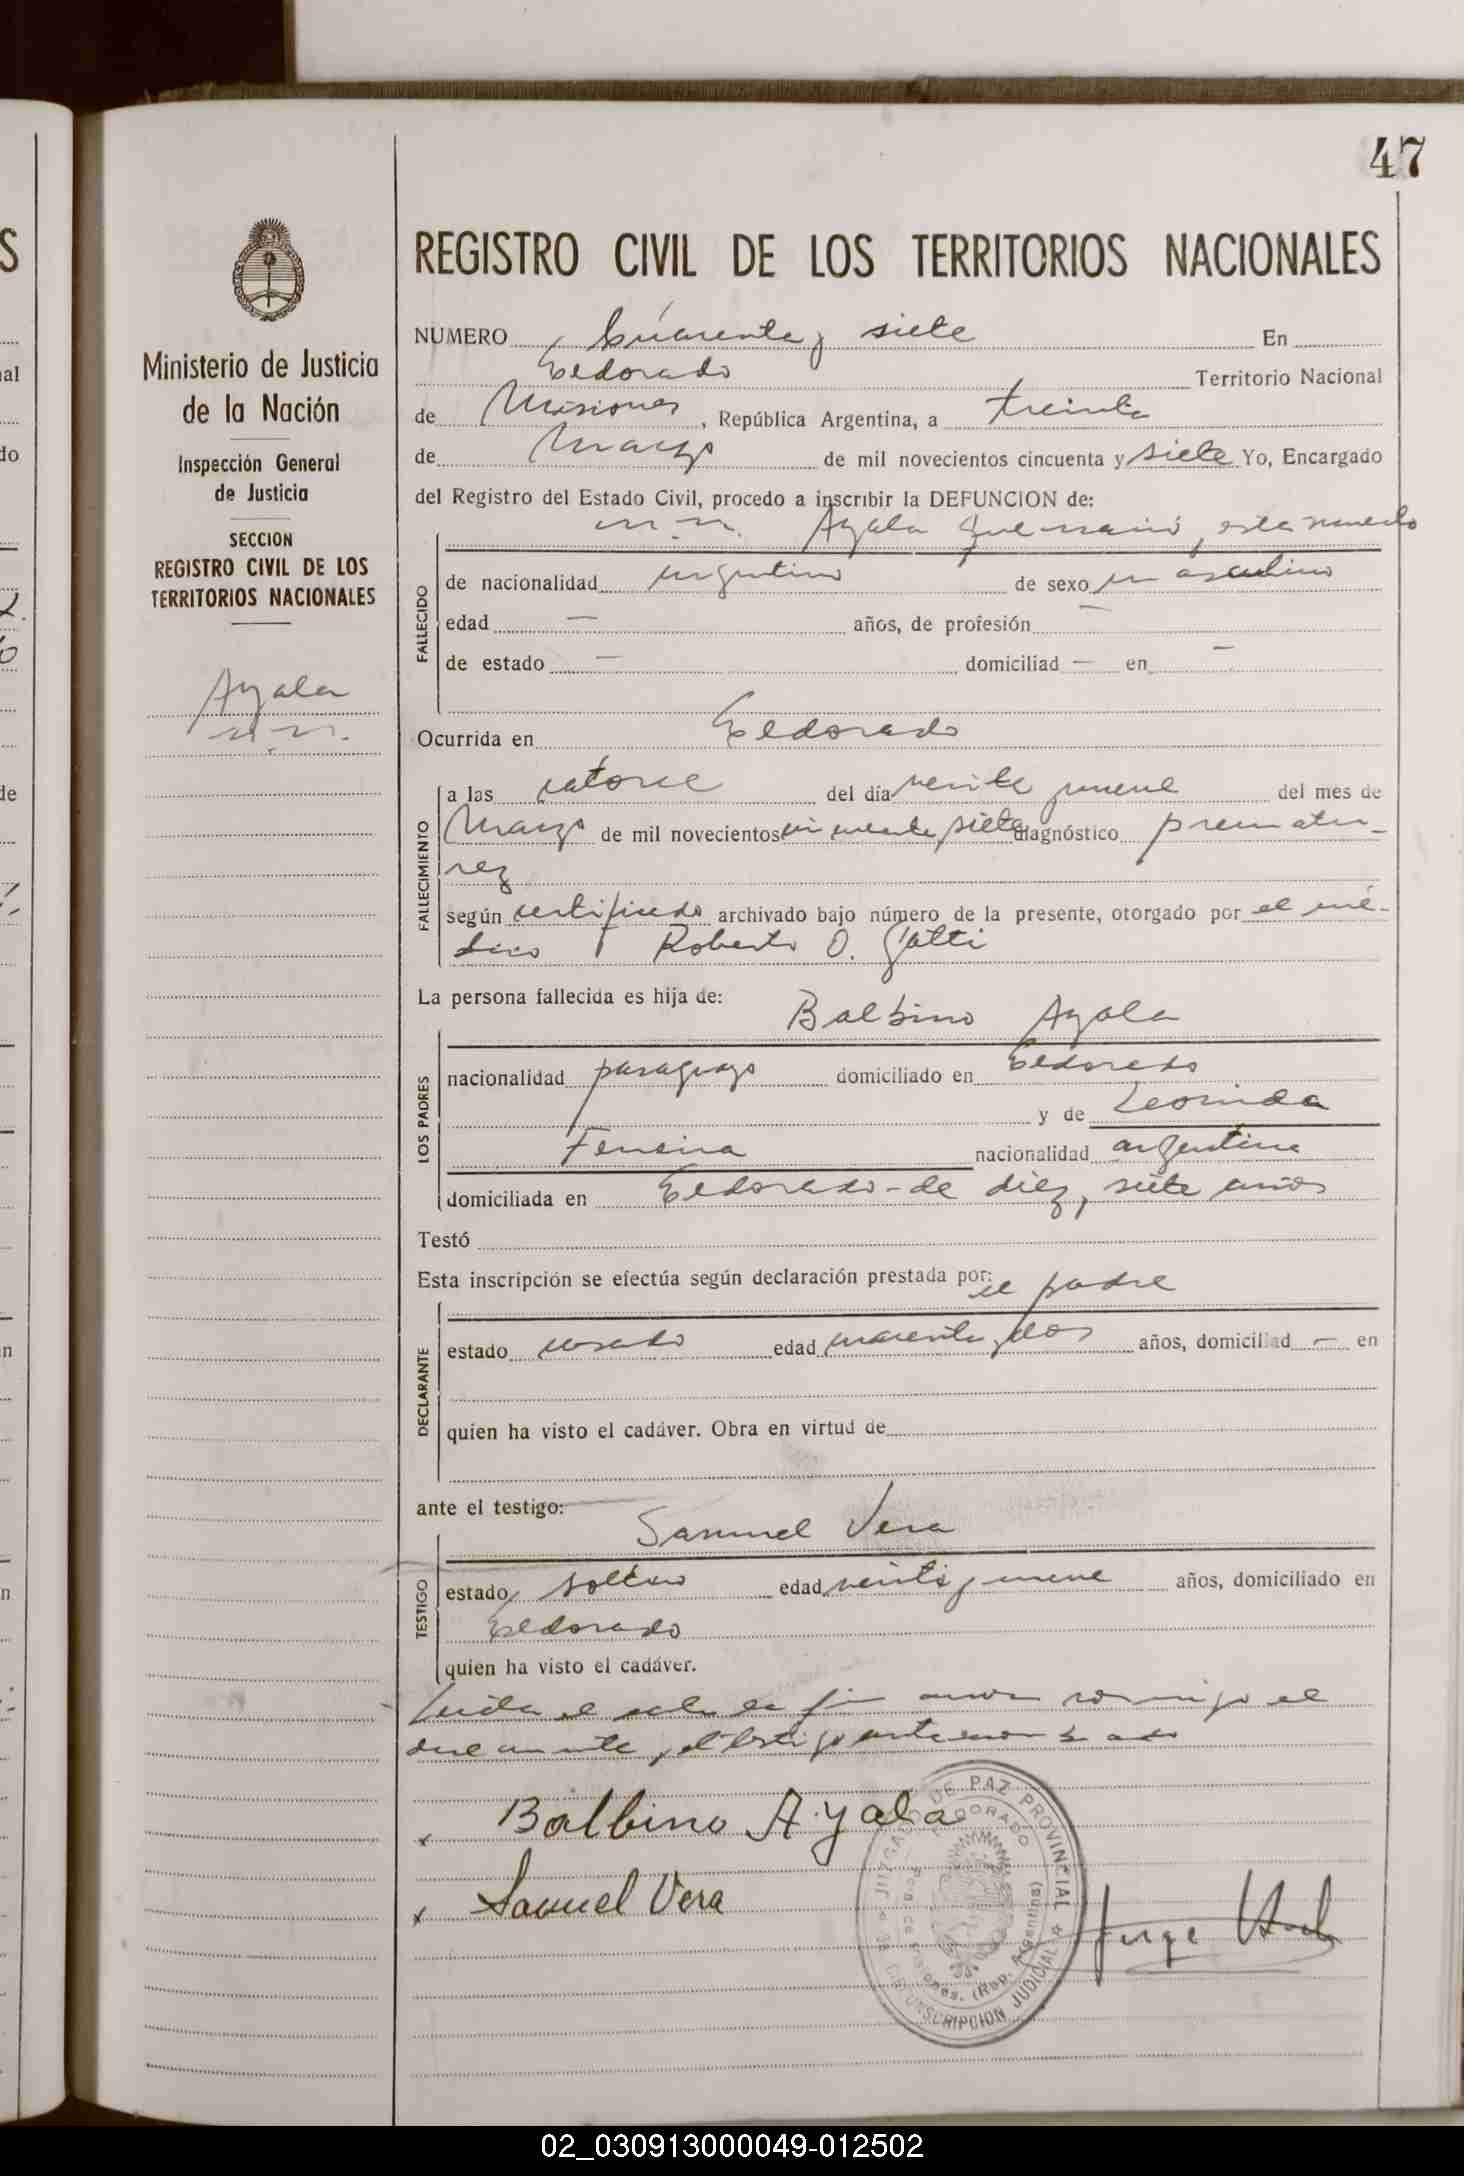 47
REGISTRO CIVIL DE LOS TERRITORIOS NACIONALES
Ministerio de Justicia
de la Nación
Inspección General
de Justicia
SECCION
REGISTRO CIVIL DE LOS
TERRITORIOS NACIONALES
Ayala
n.n.
NUMERO Cuarenta y siete En
Eldorado Territorio Nacional
de Misiones, República Argentina, a treinta
de Marzo de mil novecientos cincuenta y siete Yo, Encargado
del Registro del Estado Civil, procedo a inscribir la DEFUNCION de:
n.n. Ayala
FALLECIDO
de nacionalidad argentino de sexo masculino
edad — años, de profesión —
de estado — domiciliad — en —
Ocurrida en Eldorado
FALLECIMIENTO
a las catorce del día veinte y nueve del mes de
Marzo de mil novecientos cincuenta y siete diagnóstico prematu-
rez
según certificado archivado bajo número de la presente, otorgado por el mé-
dico Roberto O. Gatti
La persona fallecida es hija de:
Balbino Ayala
LOS PADRES
nacionalidad paraguayo domiciliado en Eldorado
y de Leonida
Ferreira nacionalidad argentina
domiciliada en Eldorado - de diez y siete años
Testó
Esta inscripción se efectúa según declaración prestada por: el padre
DECLARANTE
estado casado edad cuarenta y dos años, domiciliad — en
quien ha visto el cadáver. Obra en virtud de
ante el testigo:
Samuel Vera
TESTIGO
estado soltero edad veinte y nueve años, domiciliado en
Eldorado
quien ha visto el cadáver.
Leida el acta la firman conmigo el
declarante y el testigo
x Balbino Ayala
x Samuel Vera
Jorge
JUZGADO DE PAZ PROVINCIAL
ELDORADO
Misiones. (Rep. Argentina)
CIRCUNSCRIPCION JUDICIAL
02_030913000049-012502